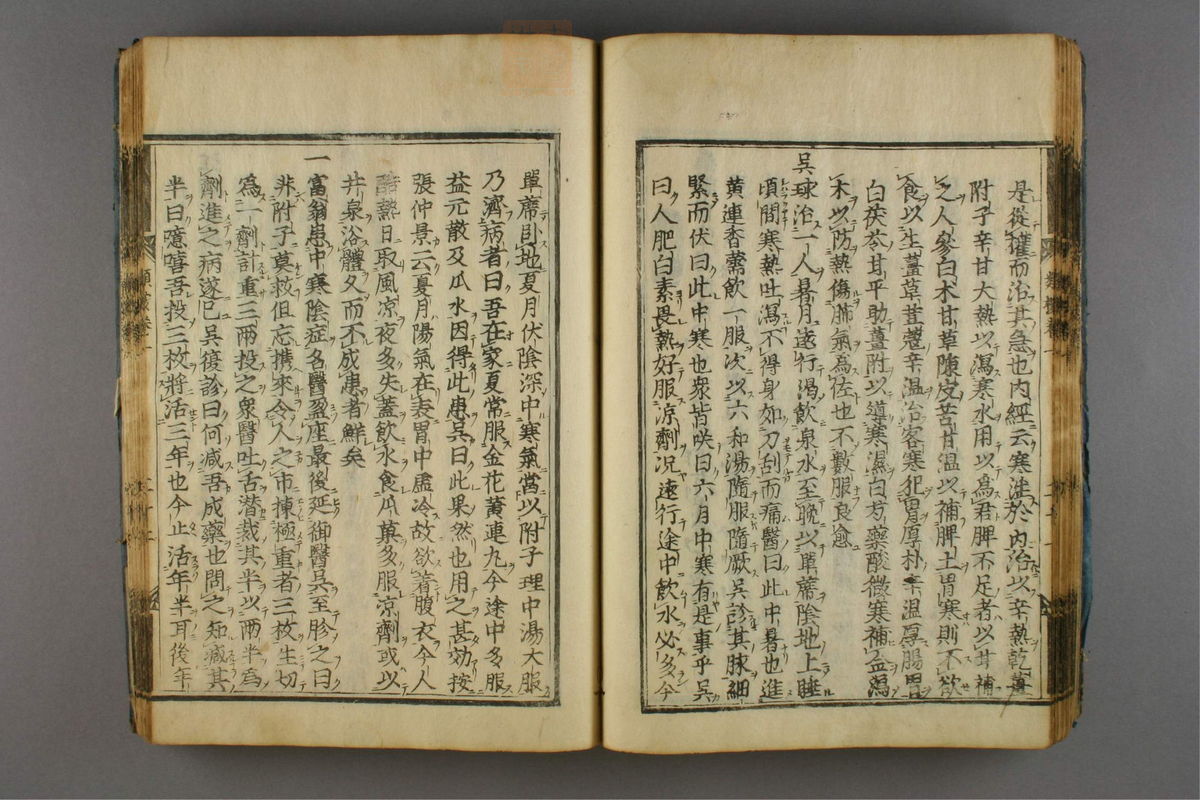 是從權而治其急也内經云寒淫於内治以辛熱乾薑
附子辛甘大熱以瀉寒水用以爲君脾不足者以甘補
之人參白朮甘草陳皮苦甘温以補脾土胃寒則不欲
食以生薑草荳蔲辛温治客寒犯胃厚朴辛温厚腸胃
白茯苓甘平助薑附以導寒濕白芍藥酸微寒補金瀉
木以防熱傷肺氣爲佐也不數服良愈
吳球治一人暑月遠行渴飲泉水至晩以單蓆陰地上睡
頃間寒熱吐瀉不得身如刀刮而痛醫曰此中暑也進
黄連香薷飲一服次以六和湯隨服隨厥吳診其脉細
緊而伏曰此中寒也衆皆咲曰六月中寒有是事乎吳
曰人肥白素畏熱好服凉劑况遠行途中飲水必多今
單蓆卧地夏月伏陰深中寒氣當以附子理中湯大服
乃濟病者曰吾在家夏常服金花黄連丸今途中多服
益元散及瓜水因得此患吳曰此果然也用之甚効按
張仲景云夏月陽氣在表胃中虛冷故欲着腹衣今人
酷熱日取風凉夜多失蓋飲水食瓜菓多服凉劑或以
井泉浴體久而不成患者鮮矣
一富翁患中寒陰症名醫盈座最後延御醫吳至胗之曰
非附子莫救但忘携來令人之市揀極重者三枚生切
爲一劑計重三兩投之衆醫吐舌潜裁其半以兩半爲
劑進之病遂已吳復診曰何减吾成藥也問之知减其
半曰噫嘻吾投三枚將活三年也今止活年半耳後年